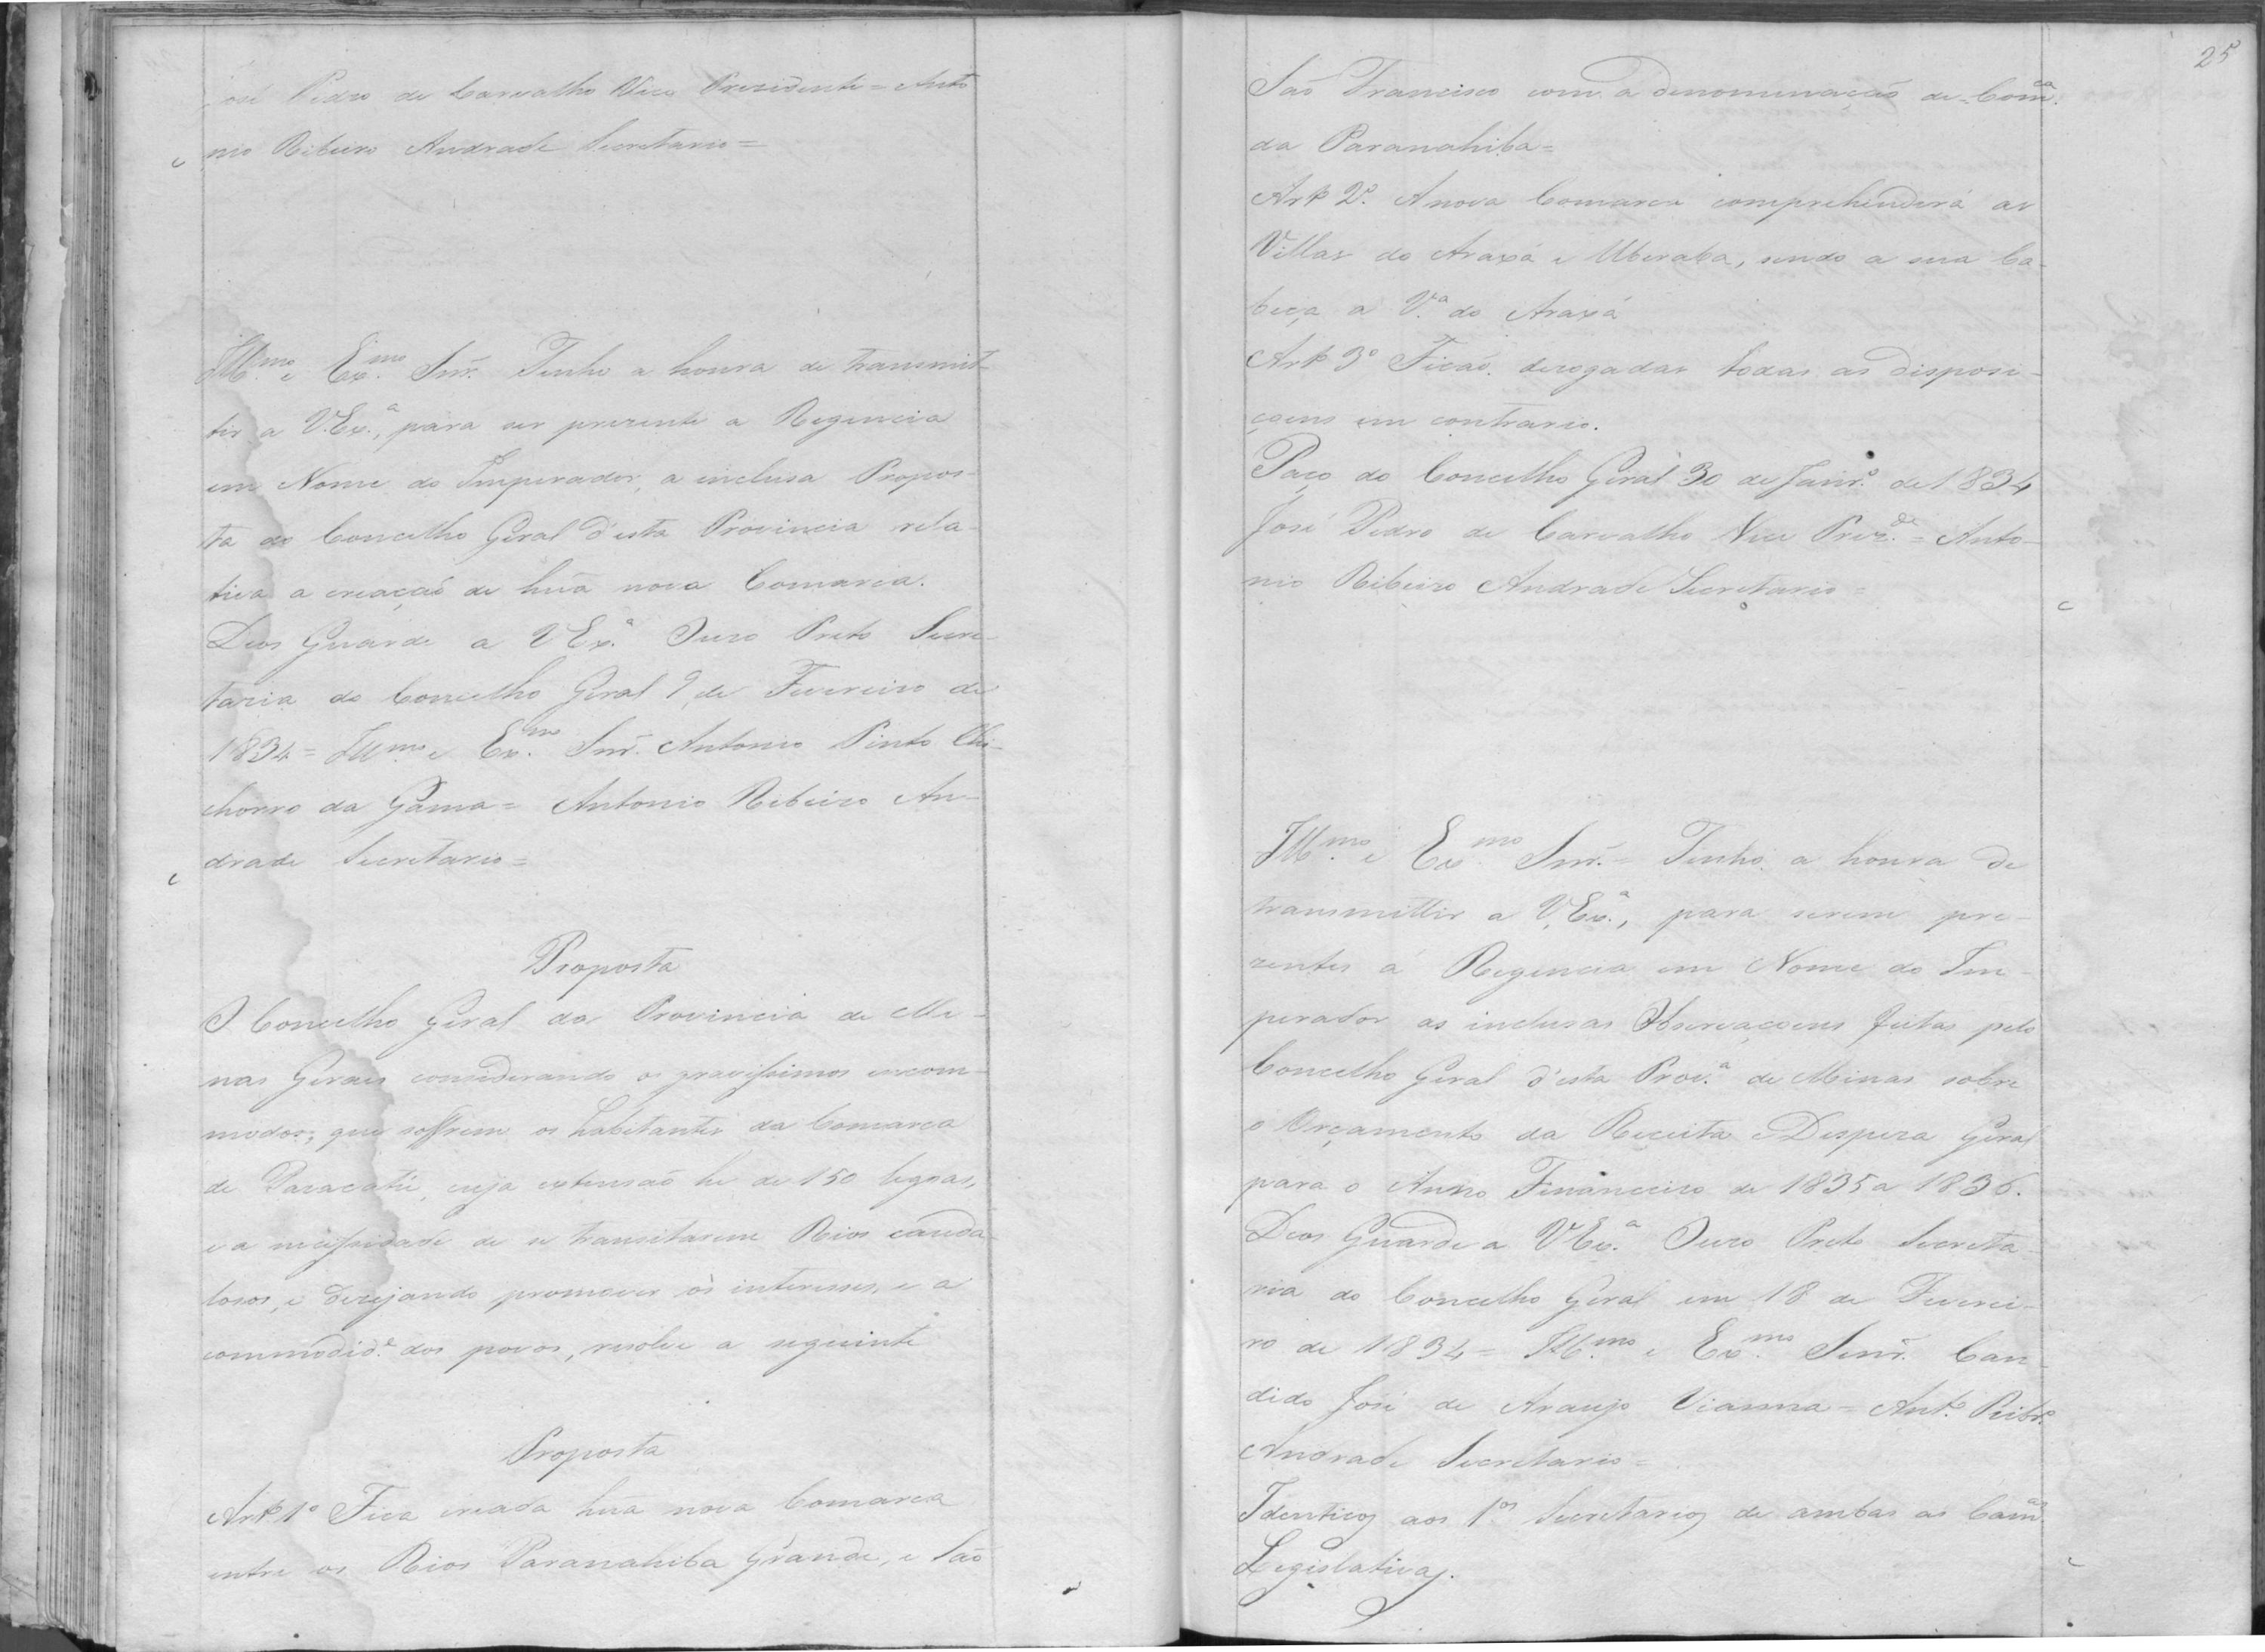 José Pedro de Carvalho Vice Presidente = Anto
nio Ribeiro Andrade Secretario =
Illmo. e Exmo. Snr. Tenho a honra de transmit-
tir a V.Exa., para ser prezente a Regencia
em Nome do Imperador, a inclusa Propos-
ta do Concelho Geral d'esta Provincia rela-
tiva a creação de huã nova Comarca.
Deos Guarde a V Exa. Ouro Preto Secre-
taria do Concelho Geral 9 de Fevereiro de
1834 = Illmo. e Exmo. Snr. Antonio Pinto Chi-
chorro da Gama = Antonio Ribeiro An-
drade Secretario =
Proposta
O Concelho Geral da Provincia de Mi-
nas Geraes considerando os gravissimos incom-
modos, que soffrem os habitantes da Comarca
de Paracatú, cuja extensaõ he de 150 legoas,
e a necessidade de se transitarem Rios cauda-
losos, e dezejando promover os interesses, e a
commodide. dos povos, resolve a seguinte
Proposta
Arto. 1º Fica creada huã nova Comarca
entre os Rios Paranahiba Grande, e Saõ
25
Saõ Francisco com a denominaçaõ de = Comca.
da Paranahiba =
Arto. 2º. A nova Comarca comprehenderá as
Villas do Araxá e Uberaba, sendo a sua Ca-
beça a Va. do Araxá
Arto. 3º Ficaõ derogadas todas as disposi-
çoens em contrario.
Paço do Concelho Geral 30 de Janro. de 1834
José Pedro de Carvalho Vice Prezde. = Anto-
nio Ribeiro Andrade Secretario =
Illmo. e Exmo. Snr. = Tenho a honra de
transmittir a V.Exa., para serem pre-
zentes á Regencia em Nome do Im-
perador as inclusas Observaçoens feitas pelo
Concelho Geral d'esta Prova. de Minas sobre
o Orçamento da Receita e Despeza Geral
para o Anno Financeiro de 1835 a 1836.
Deos Guarde a V Exa. Ouro Preto Secreta-
ria do Concelho Geral em 18 de Feverei-
ro de 1834 = Illmo. e Exmo. Senr. Can-
dido José de Araujo Vianna = Anto. Ribro.
Andrade Secretario =
Identicos aos 1os Secretarios de ambas as Camas.
Legislativas.